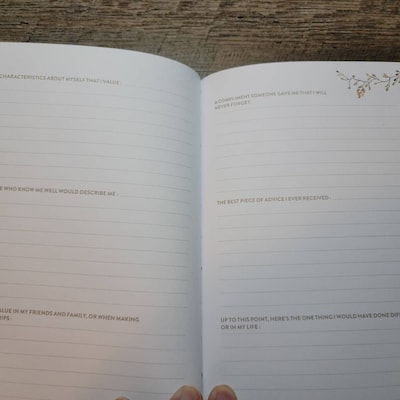 CHARACTERISTICS ABOUT MYSELF THAT I VALUE:
WHO KNOW ME WELL WOULD DESCRIBE ME:
VALUE IN MY FRIENDS AND FAMILY, OR WHEN MAKING
A COMPLIMENT SOMEONE GAVE ME THAT I WILL
NEVER FORGET:
THE BEST PIECE OF ADVICE I EVER RECEIVED:
UP TO THIS POINT, HERE'S THE ONE THING I WOULD HAVE DONE
OR IN MY LIFE: